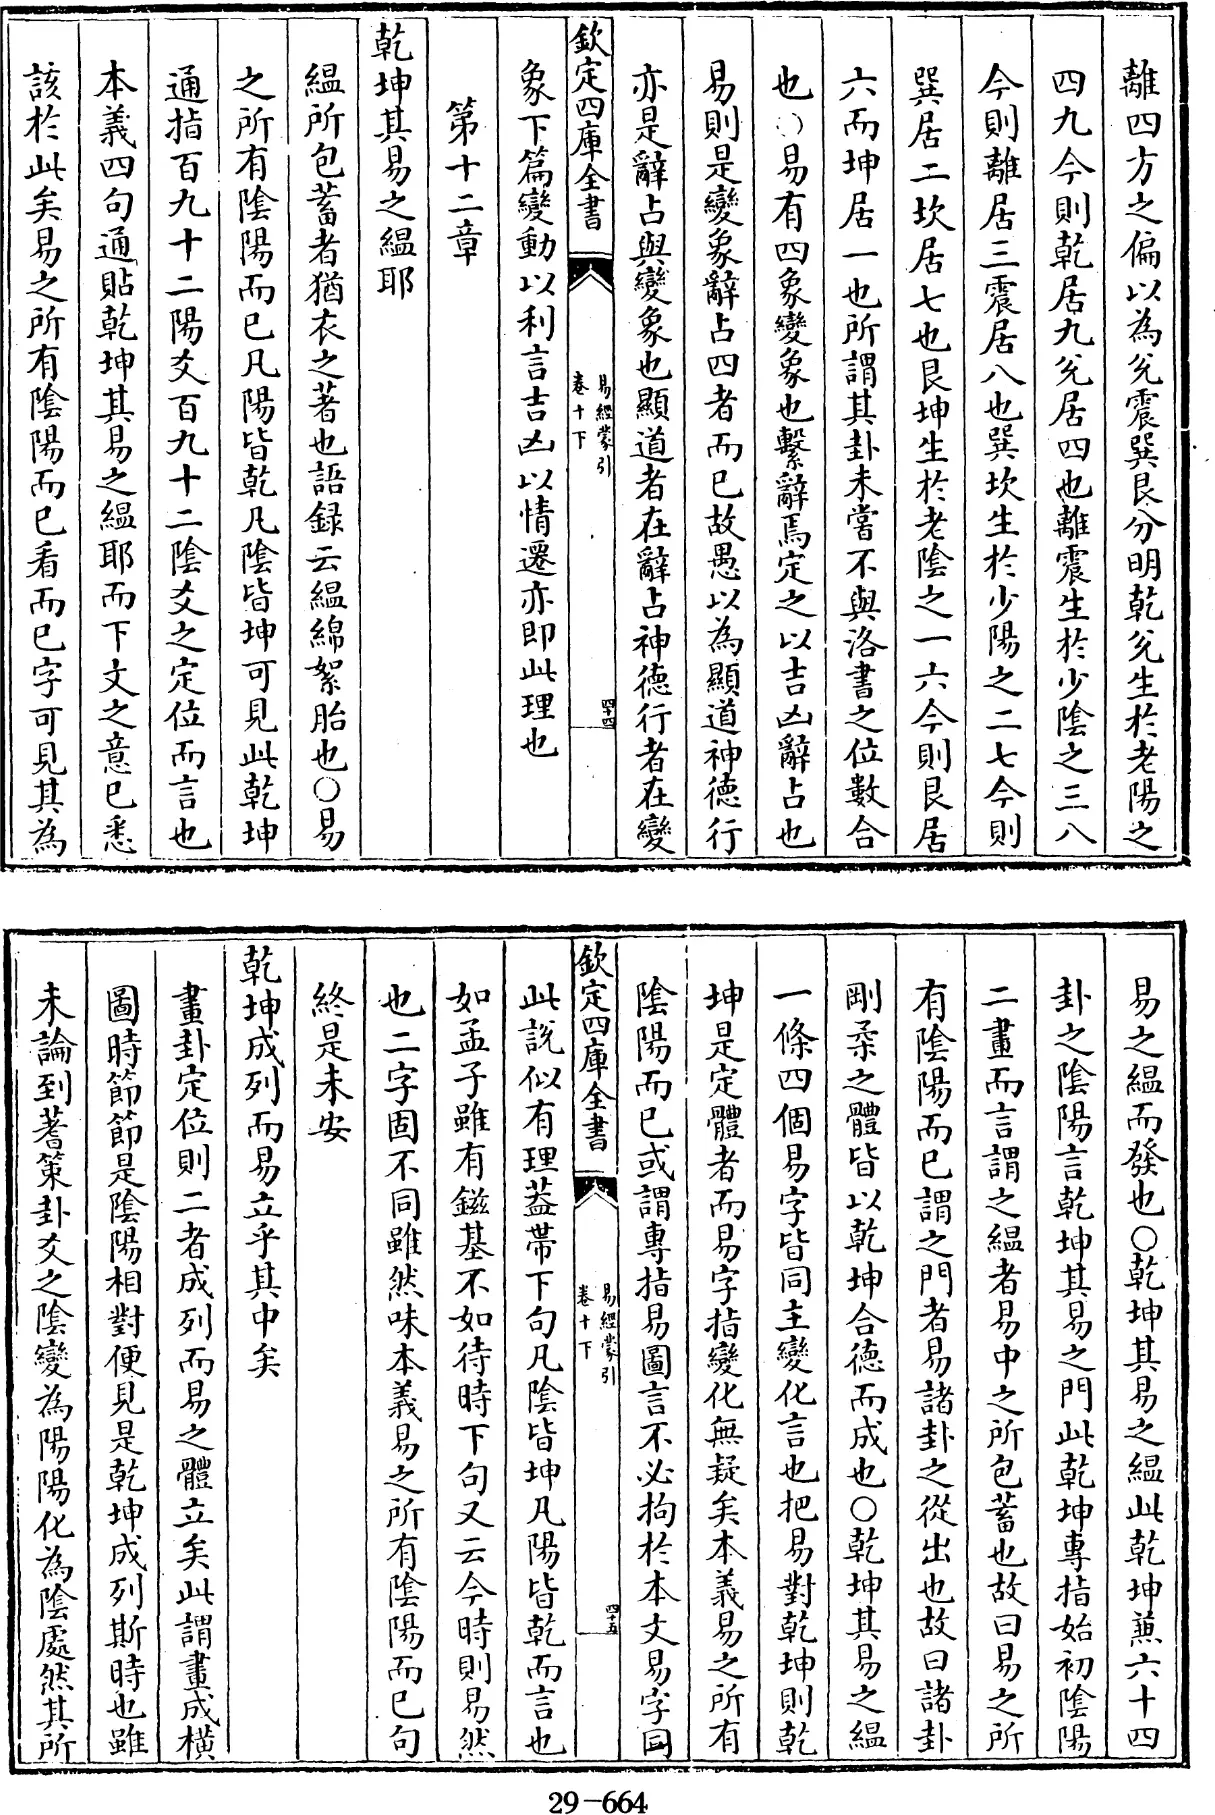 離四方之偏以為兊震巽艮分明乾兊生於老陽之
四九今則乾居九兊居四也離震生於少陰之三八
今則離居三震居八也巽坎生於少陽之二七今則
巽居二坎居七也艮坤生於老陰之一六今則艮居
六而坤居一也所謂其卦未嘗不與洛書之位數合
也○易有四象變象也繫辭焉定之以吉凶辭占也
易則是變象辭占四者而已故愚以為顯道神德行
亦是辭占與變象也顯道者在辭占神德行者在變
欽定四庫全書
易經蒙引
卷十下
四十四
象下篇變動以利言吉凶以情遷亦即此理也
第十二章
乾坤其易之緼耶
緼所包蓄者猶衣之著也語録云緼綿絮胎也○易
之所有陰陽而已凡陽皆乾凡陰皆坤可見此乾坤
通指百九十二陽爻百九十二陰爻之定位而言也
本義四句通貼乾坤其易之緼耶而下文之意已悉
該於此矣易之所有陰陽而已看而已字可見其為
易之緼而發也○乾坤其易之緼此乾坤兼六十四
卦之陰陽言乾坤其易之門此乾坤專指始初陰陽
二畫而言謂之緼者易中之所包蓄也故曰易之所
有陰陽而已謂之門者易諸卦之從出也故曰諸卦
剛柔之體皆以乾坤合德而成也○乾坤其易之緼
一條四個易字皆同主變化言也把易對乾坤則乾
坤是定體者而易字指變化無疑矣本義易之所有
陰陽而已或謂專指易圖言不必拘於本文易字同
欽定四庫全書
易經蒙引
卷十下
四十五
此說似有理葢帶下句凡陰皆坤凡陽皆乾而言也
如孟子雖有鎡基不如待時下句又云今時則易然
也二字固不同雖然味本義易之所有陰陽而已句
終是未安
乾坤成列而易立乎其中矣
畫卦定位則二者成列而易之體立矣此謂畫成橫
圖時節節是陰陽相對便見是乾坤成列斯時也雖
未論到蓍策卦爻之陰變為陽陽化為陰處然其所
29-664